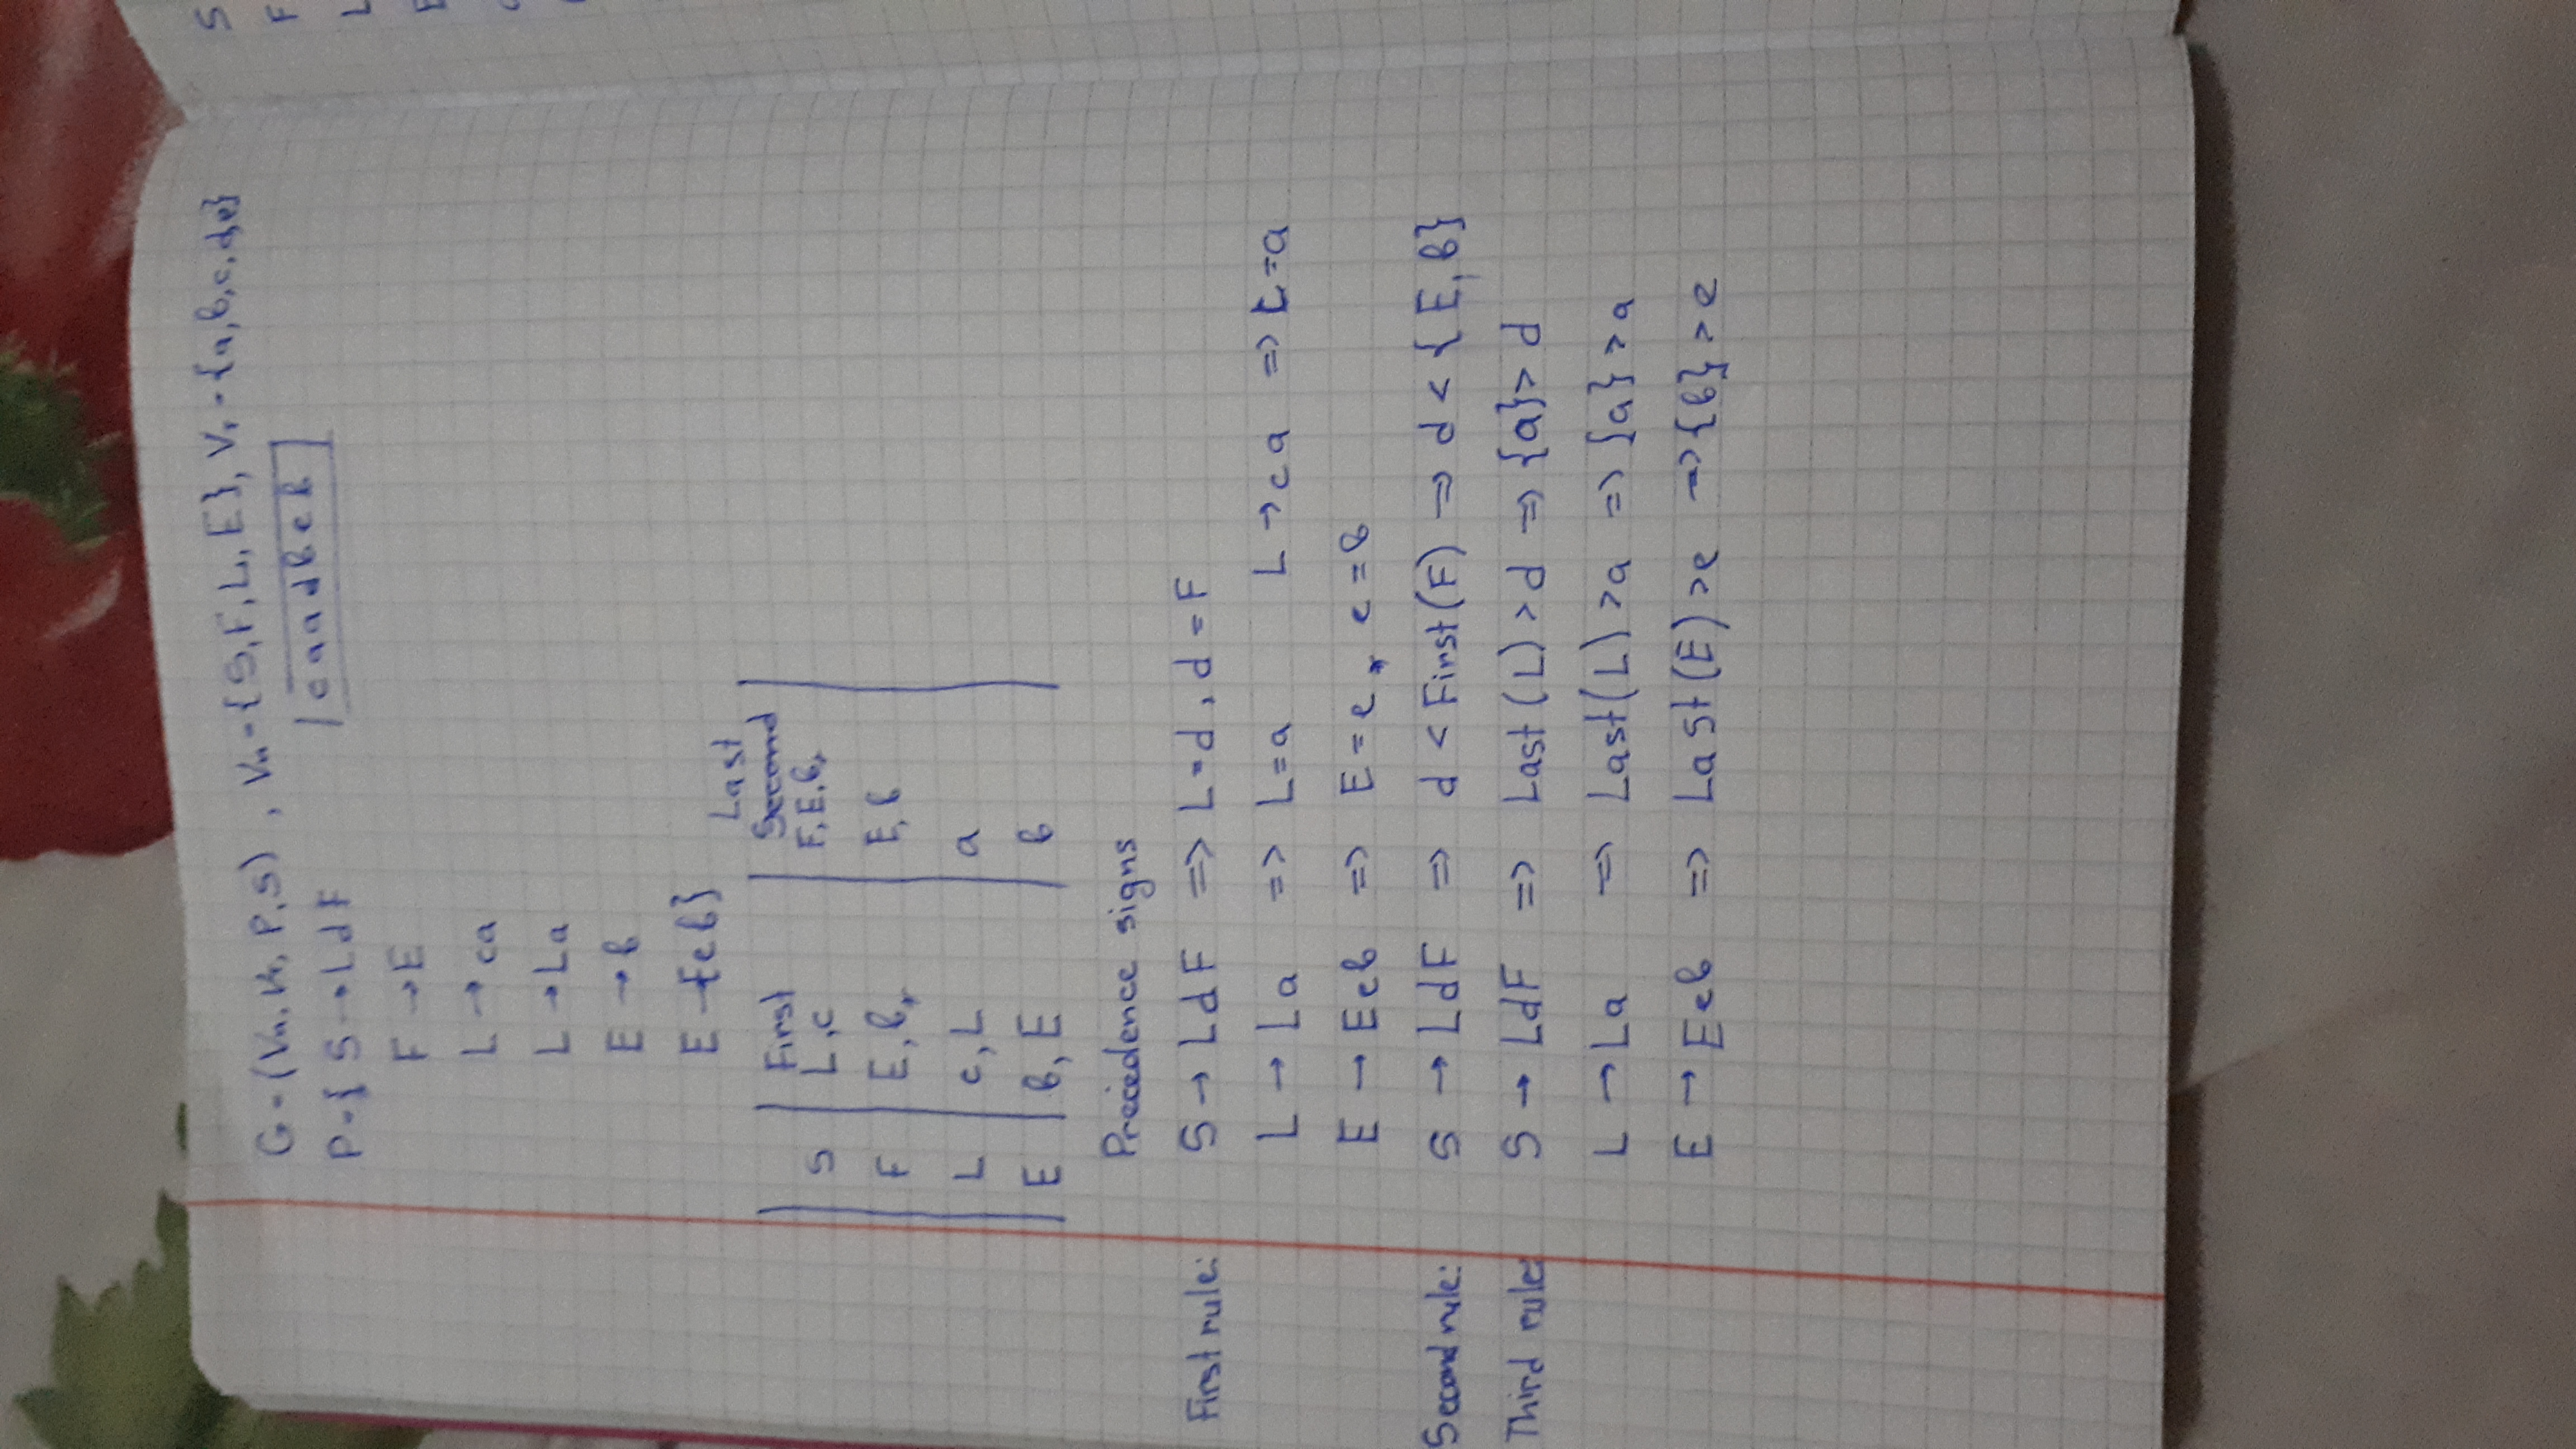 G=(Vn, Vt, P, S), Vn={S,F,L,E}, Vt={a,b,c,d,e}
P={ S→LdF |caadbeb|
F→E
L→ca
L→La
E→b
E→Eeb}
Last
First Second
S L,c F,E,b
F E,b, E,b
L c,L a
E b,E b
Precedence signs
First rule: S→LdF => L=d, d=F
L→La => L=a L→ca => c=a
E→Eeb => E=e, e=b
Second rule: S→LdF => d<First(F) => d<{E,b}
Third rule: S→LdF => Last(L)>d => {a}>d
L→La => Last(L)>a => {a}>a
E→Eeb => Last(E)>e => {b}>e
S
F
L
E